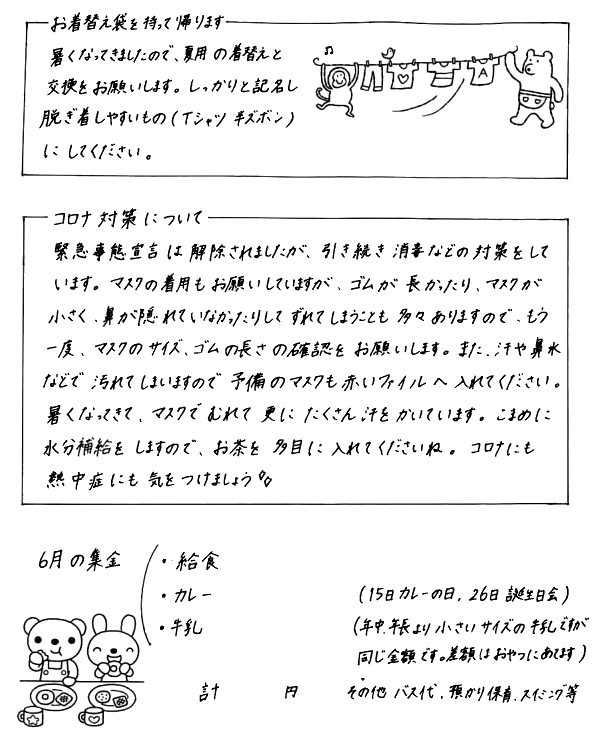 お着替え袋を持って帰ります
暑くなってきましたので、夏用の着替えと
交換をお願いします。しっかりと記名し
脱ぎ着しやすいもの(Tシャツ 半ズボン)
にしてください。
A
コロナ対策について
緊急事態宣言は解除されましたが、引き続き消毒などの対策をして
います。マスクの着用もお願いしていますが、ゴムが長かったり、マスクが
小さく、鼻が隠れていなかったりしてずれてしまうことも多々ありますので、もう
一度、マスクのサイズ、ゴムの長さの確認をお願いします。また、汗や鼻水
などで汚れてしまいますので予備のマスクも赤いファイルへ入れてください。
暑くなってきて、マスクでむれて更にたくさん汗をかいています。こまめに
水分補給をしますので、お茶を多目に入れてくださいね。コロナにも
熱中症にも気をつけましょう
6月の集金
・給食
・カレー (15日カレーの日、26日誕生日会)
・牛乳 (年中、年長より小さいサイズの牛乳ですが
同じ金額です。差額はおやつにあてます)
計 円 その他 バス代、預かり保育、スイミング等